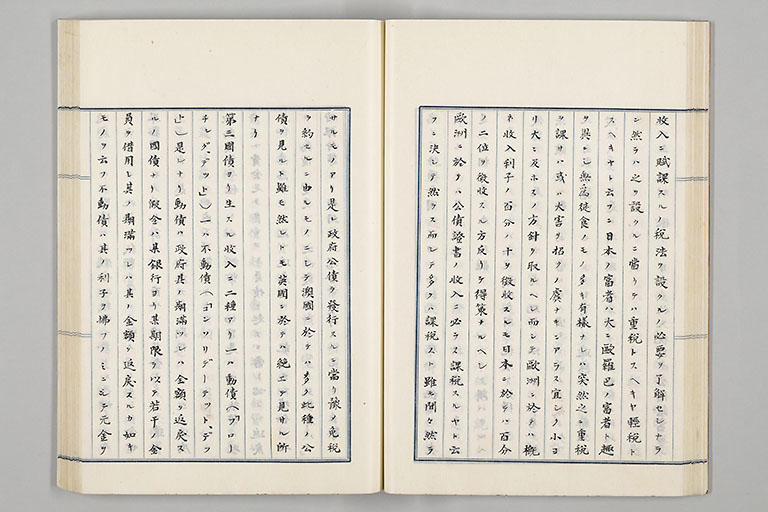 收入ニ賦課スルノ税法ヲ設クルノ必要ヲ了解セシナラ
ン然ラハ之ヲ設クルニ當リテハ重税トスヘキヤ輕税ト
スヘキヤト云フニ日本ノ富者ハ大ニ歐羅巴ノ富者ト趣
ヲ異ニシ無為徒食ノモノ多キ有様ナレハ突然之ニ重税
ヲ課セハ或ハ大害ヲ招クノ虞ナキニアラス宜シク小ヨ
リ大ニ及ホスノ方針ヲ取ルヘシ而シテ歐洲ニ於テハ概
ネ收入利子ノ百分ノ十ヲ徴收スルモ日本ニ於テハ百分
ノ二位ヲ徴收スル方反リテ得策ナルヘシ
歐洲ニ於テハ公債證書ノ收入ニ必ラス課税スルヤト云
フニ決シテ然ラス而シテ多クハ課税スト雖モ間々然ラ
サルモノアリ是レ政府公債ヲ發行スルニ當リ豫メ免税
ヲ約セルニ由ルモノニシテ澳國ニ於テハ多ク此種ノ公
債ヲ見ルト雖モ然レトモ英國ニ於テハ絶エテ見サル所
ナリ
第三國債ヨリ生スル收入ニ二種アリ一ハ動債（「フロー
チング、デット」）一ハ不動債（「コンソリデーテット、デッ
ト」）是レナリ動債ハ政府其ノ期滿ツレハ金額ヲ返戻ス
ルノ國債ナリ假令ハ某銀行ヨリ某期限ヲ以テ若干ノ金
員ヲ借用シ其ノ期滿ツレハ其ノ金額ヲ返戻スルカ如キ
モノヲ云フ不動債ハ其ノ利子ヲ拂フノミニシテ元金ヲ